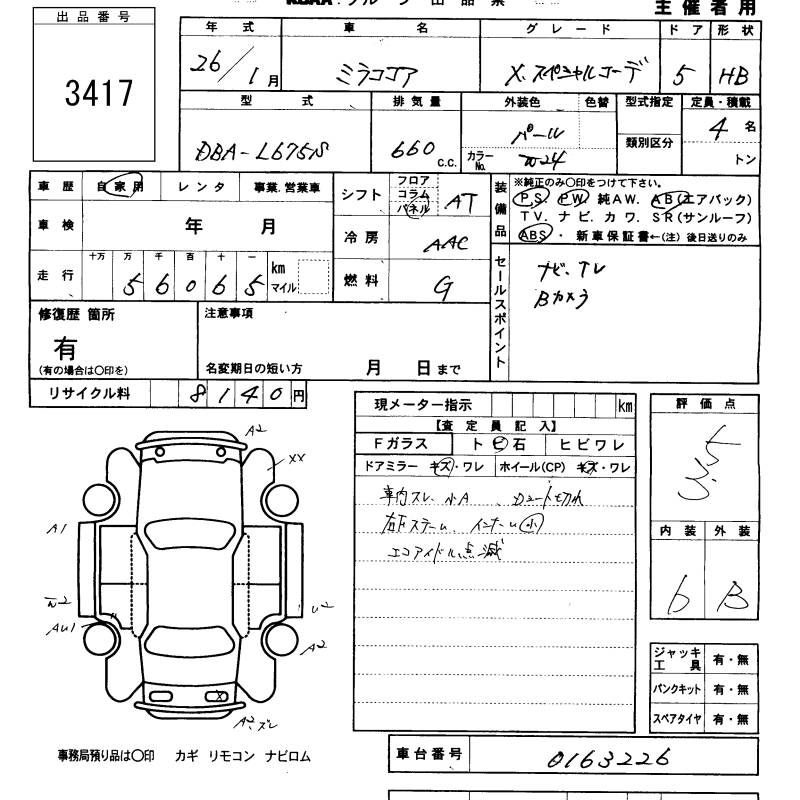 主催者用
出品番号
3417
年式 車名 グレード ドア 形状
26/1月 ミラココア X.スペシャルコーデ 5 HB
型式 排気量 外装色 色替 型式指定 定員・積載
DBA-L675S 660 c.c. パール カラーNo. W24 類別区分 4名
トン
車歴 自家用 レンタ 事業.営業車
車検 年 月
走行 十万 万 千 百 十 一
56065 km マイル
シフト フロア コラム パネル AT
冷房 AAC
燃料 G
装備品 ※純正のみ〇印をつけて下さい。
P.S PW 純AW. AB(エアバック)
TV. ナビ. カワ. SR(サンルーフ)
ABS・新車保証書←(注) 後日送りのみ
セールスポイント
ナビ、TV
Bカメラ
修復歴 箇所
有
(有の場合は〇印を)
注意事項
名変期日の短い方 月 日まで
リサイクル料 8140円
現メーター指示 km
【査定員記入】
Fガラス トビ石 ヒビワレ
ドアミラー キズ・ワレ ホイール(CP) キズ・ワレ
車内スレ、小A
エコアイドル点滅
評価点
内装 外装
6 B
A2
XX
A1
U2
AU1
A2
X
A2.ズレ
ジャッキ工具 有・無
パンクキット 有・無
スペアタイヤ 有・無
事務局預り品は〇印 カギ リモコン ナビロム
車台番号 0163226